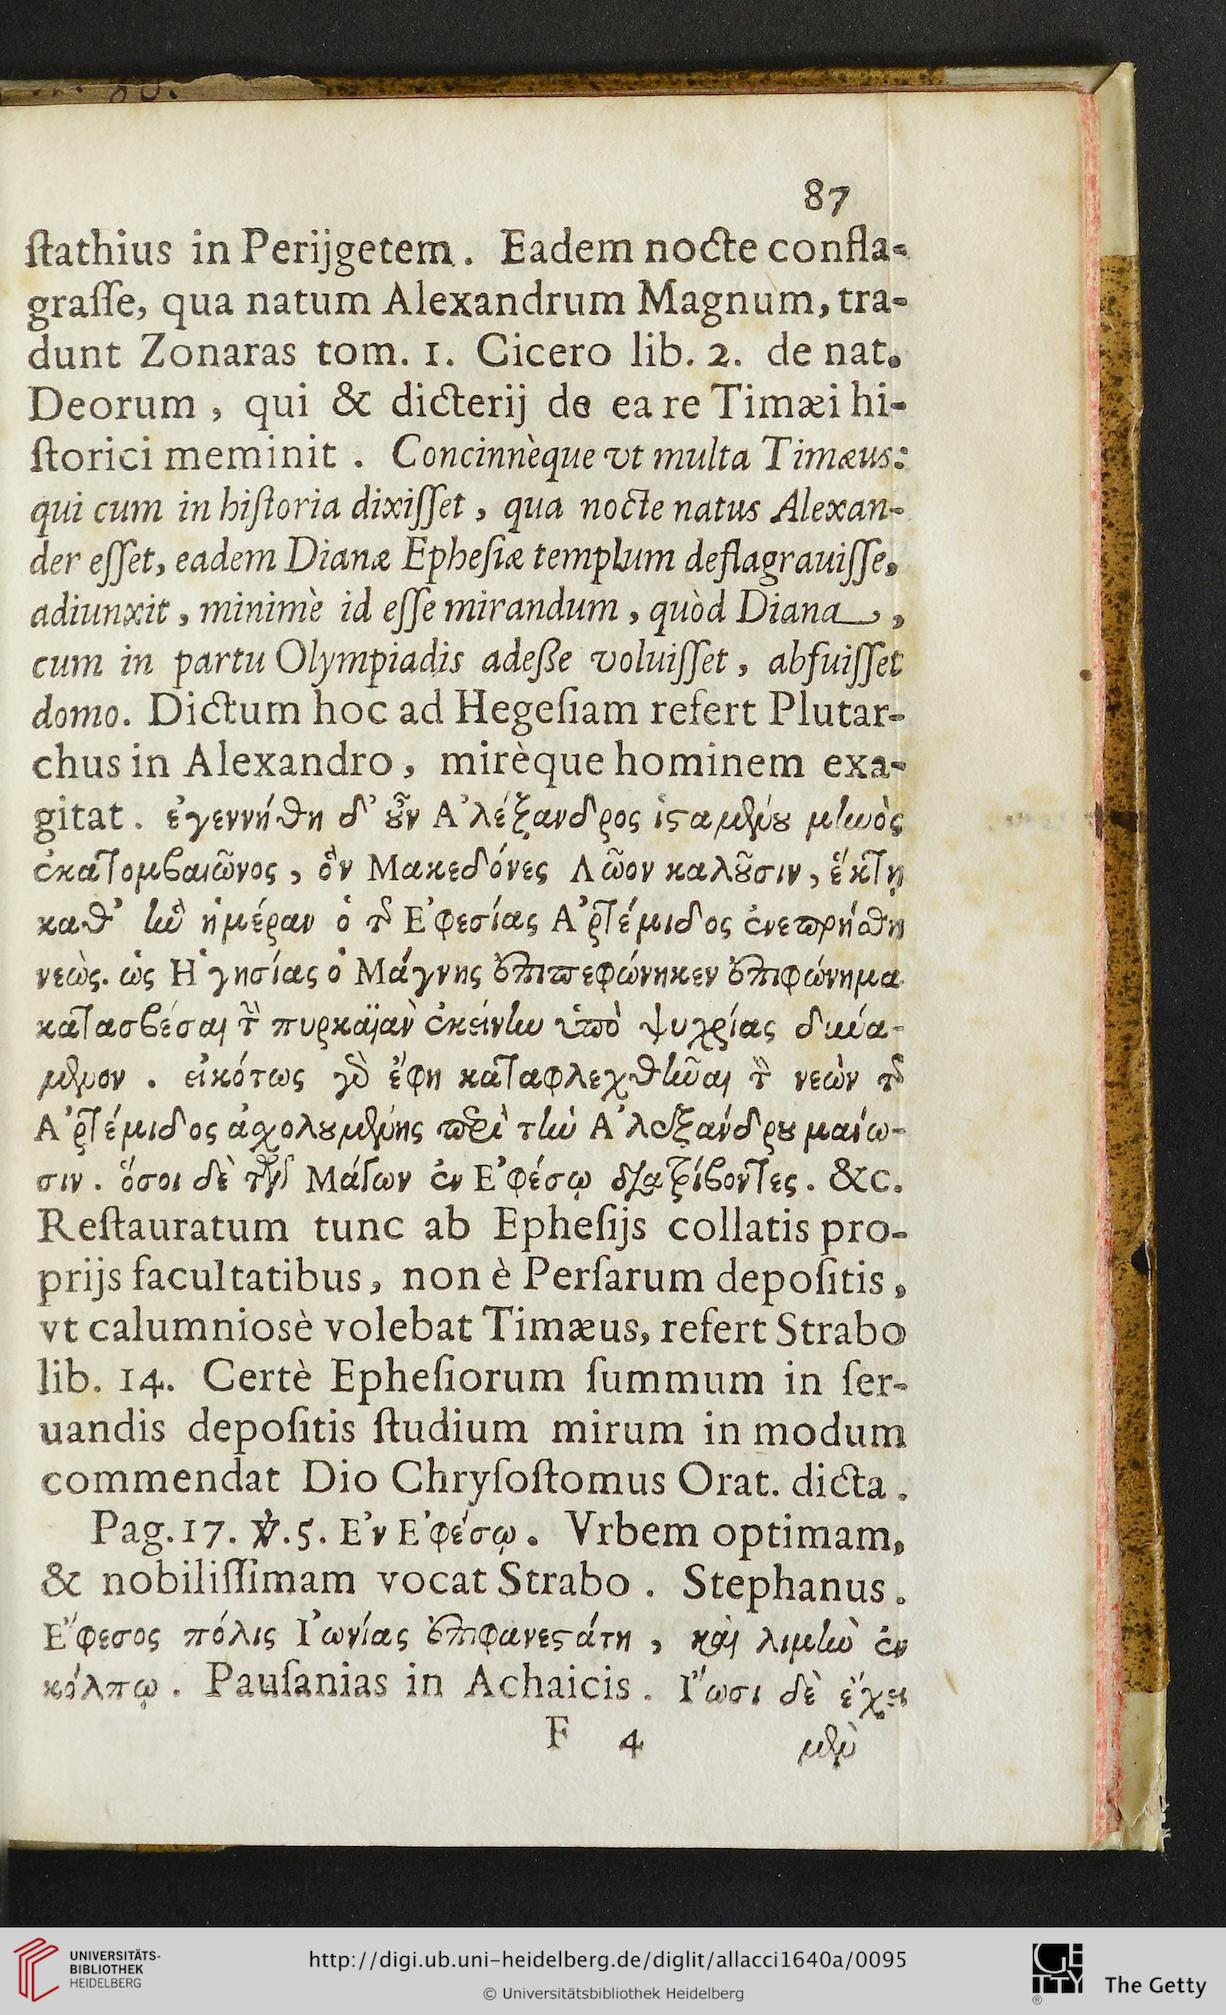 87
ſtathius in Perijgetem. Eadem nocte confla-
graſſe, qua natum Alexandrum Magnum, tra-
dunt Zonaras tom. 1. Cicero lib. 2. de nat.
Deorum, qui & dicterij de ea re Timæi hi-
ſtorici meminit. Concinnèque vt multa Timæus:
qui cum in hiſtoria dixiſſet, qua nocte natus Alexan-
der eſſet, eadem Dianæ Epheſiæ templum deflagrauiſſe,
adiunxit, minimè id eſſe mirandum, quòd Diana,
cum in partu Olympiadis adeße voluiſſet, abfuiſſet
domo. Dictum hoc ad Hegeſiam refert Plutar-
chus in Alexandro, mirèque hominem exa-
gitat. ἐγεννήθη δ' οὖν Α'λέξανδρος ἱσταμένου μηνὸς
ἑκατομβαιῶνος, ὃν Μακεδόνες Λῶον καλοῦσιν, ἕκτῃ
καθ' ἣν ἡμέραν ὁ τῆς Ε'φεσίας Α'ρτέμιδος ἐνεπρήσθη
νεὼς. ὡς Η'γησίας ὁ Μάγνης ἐπιπεφώνηκεν ἐπιφώνημα
κατασβέσαι τὴν πυρκαϊαν ἐκείνην ὑπὸ ψυχρίας δυνά-
μενον. εἰκότως γὸ ἔφη καταφλεχθῆναι τὸν νεὼν τῆς
Α'ρτέμιδος ἀχολουμένης περὶ τὴν Α'λεξάνδρου μαίω-
σιν. ὅσοι δὲ τῶν Μάγων ἐν Ε'φέσῳ διατρίβοντες. &c.
Reſtauratum tunc ab Epheſijs collatis pro-
prijs facultatibus, non è Perſarum depoſitis,
vt calumniosè volebat Timæus, refert Strabo
lib. 14. Certè Epheſiorum ſummum in ſer-
uandis depoſitis ſtudium mirum in modum
commendat Dio Chryſoſtomus Orat. dicta.
Pag. 17. ℣. 5. Ε'ν Ε'φέσῳ. Vrbem optimam,
& nobiliſſimam vocat Strabo. Stephanus.
Ε"φεσος πόλις Ι'ωνίας ἐπιφανεστάτη, καὶ λιμὴν ἐν
κόλπῳ. Pauſanias in Achaicis. Ι"ωσι δὲ ἔχει
F 4
μὲν
UNIVERSITÄTS-
BIBLIOTHEK
HEIDELBERG
http://digi.ub.uni-heidelberg.de/diglit/allacci1640a/0095
© Universitätsbibliothek Heidelberg
GETTY
The Getty